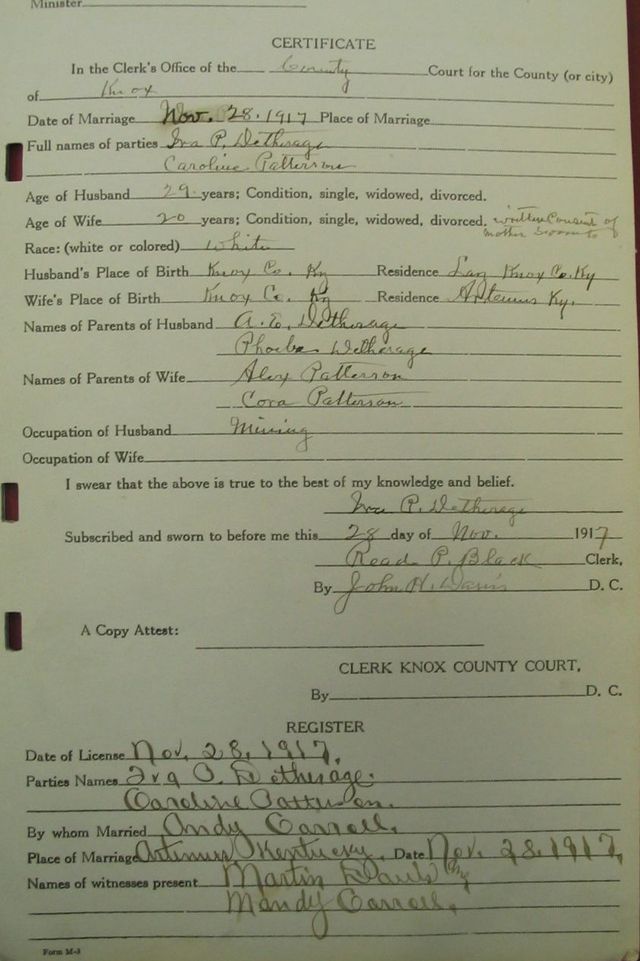 Minister
CERTIFICATE
In the Clerk's Office of the County Court for the County (or city)
of Knox
Date of Marriage Nov. 28, 1917 Place of Marriage
Full names of parties Iva P. Detherage
Caroline Patterson
Age of Husband 29 years; Condition, single, widowed, divorced.
Age of Wife 20 years; Condition, single, widowed, divorced. written Consent of
mother
Race: (white or colored) White
Husband's Place of Birth Knox Co. Ky Residence Lay Knox Co. Ky
Wife's Place of Birth Knox Co. Ky Residence Artemus Ky.
Names of Parents of Husband A. E. Detherage
Phoebe Detherage
Names of Parents of Wife Alex Patterson
Cora Patterson
Occupation of Husband Mining
Occupation of Wife
I swear that the above is true to the best of my knowledge and belief.
Iva P. Detherage
Subscribed and sworn to before me this 28 day of Nov. 1917
Read P. Black Clerk,
By John H. Davis D. C.
A Copy Attest:
CLERK KNOX COUNTY COURT,
By D. C.
REGISTER
Date of License Nov. 28, 1917.
Parties Names Iva P. Detherage.
Caroline Patterson.
By whom Married Andy Carroll.
Place of Marriage Artemus Kentucky. Date Nov. 28, 1917,
Names of witnesses present Martin
Mandy Carroll.
Form M-3